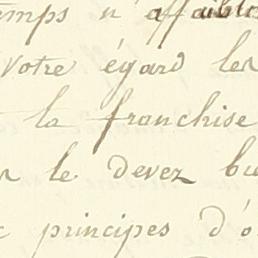 emps n'affaiblis
votre égard les
la franchise
le devez bie
principes d'o